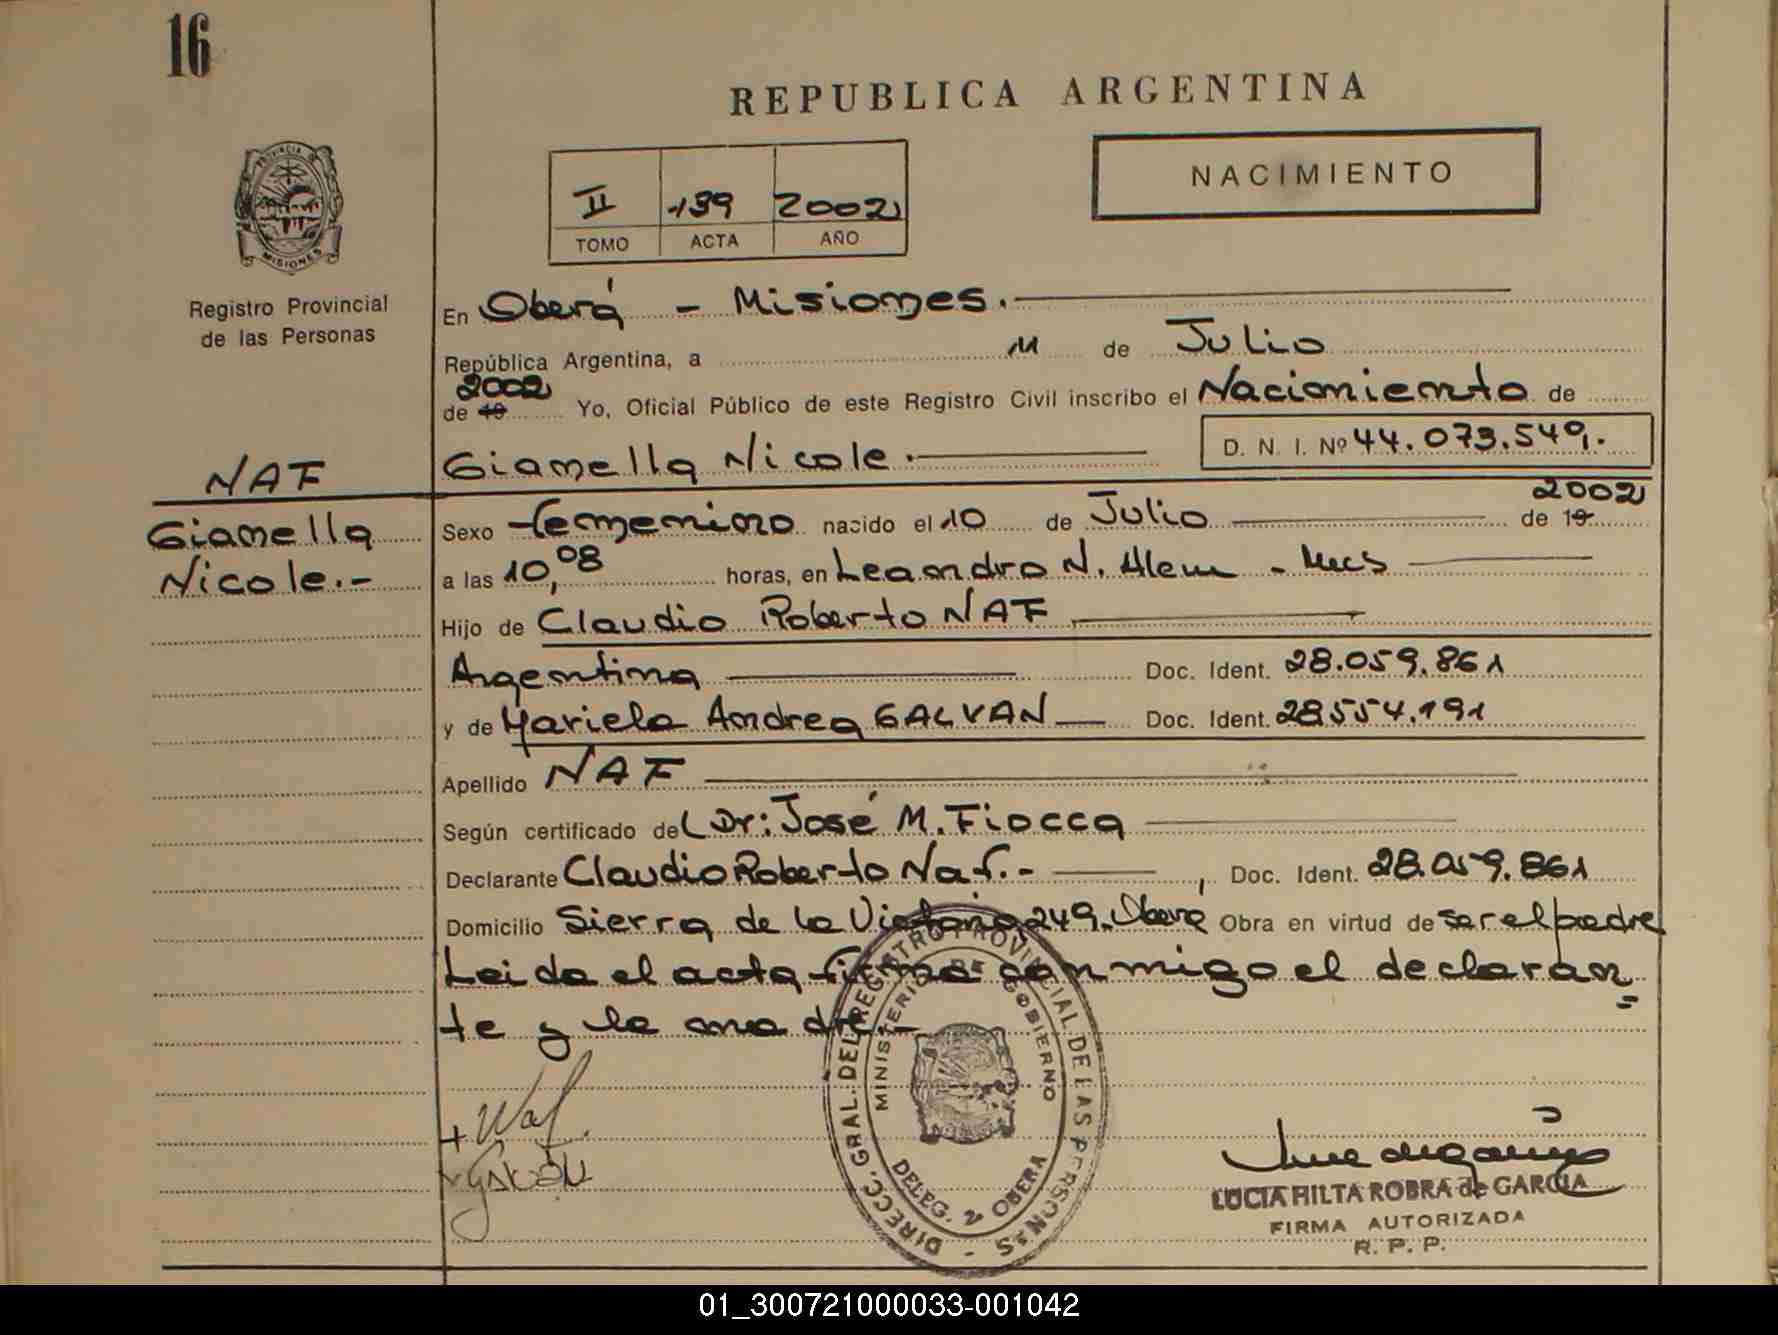 16
REPUBLICA ARGENTINA
NACIMIENTO
II 139 2002
TOMO ACTA AÑO
PROVINCIA DE
MISIONES
Registro Provincial
de las Personas
En Oberá - Misiones.
República Argentina, a 11 de Julio
2002
de 19 Yo, Oficial Público de este Registro Civil inscribo el Nacimiento de
Gianella Nicole. D. N. I. Nº 44.073.549.
NAF
Gianella
Nicole.-
2002
Sexo femenino nacido el 10 de Julio de 19
a las 10,08 horas, en Leandro N. Alem - Mnes
Hijo de Claudio Roberto NAF
Argentina Doc. Ident. 28.059.861
y de Mariela Andrea GALVAN Doc. Ident. 28554.191
Apellido NAF
Según certificado del Dr: José M. Fiocca
Declarante Claudio Roberto Naf.- , Doc. Ident. 28.059.861
Domicilio Sierra de la Victoria 249. Oberá Obra en virtud de ser el padre
Leida el acta firma conmigo el declaran=
te y la madre.-
DIRECC. GRAL. DEL REGISTRO PROVINCIAL DE LAS PERSONAS -
MINISTERIO DE GOBIERNO
DELEG. 2 OBERA
+ Naf.
LUCIA HILTA ROBRA de GARCIA
FIRMA AUTORIZADA
R. P. P.
01_300721000033-001042